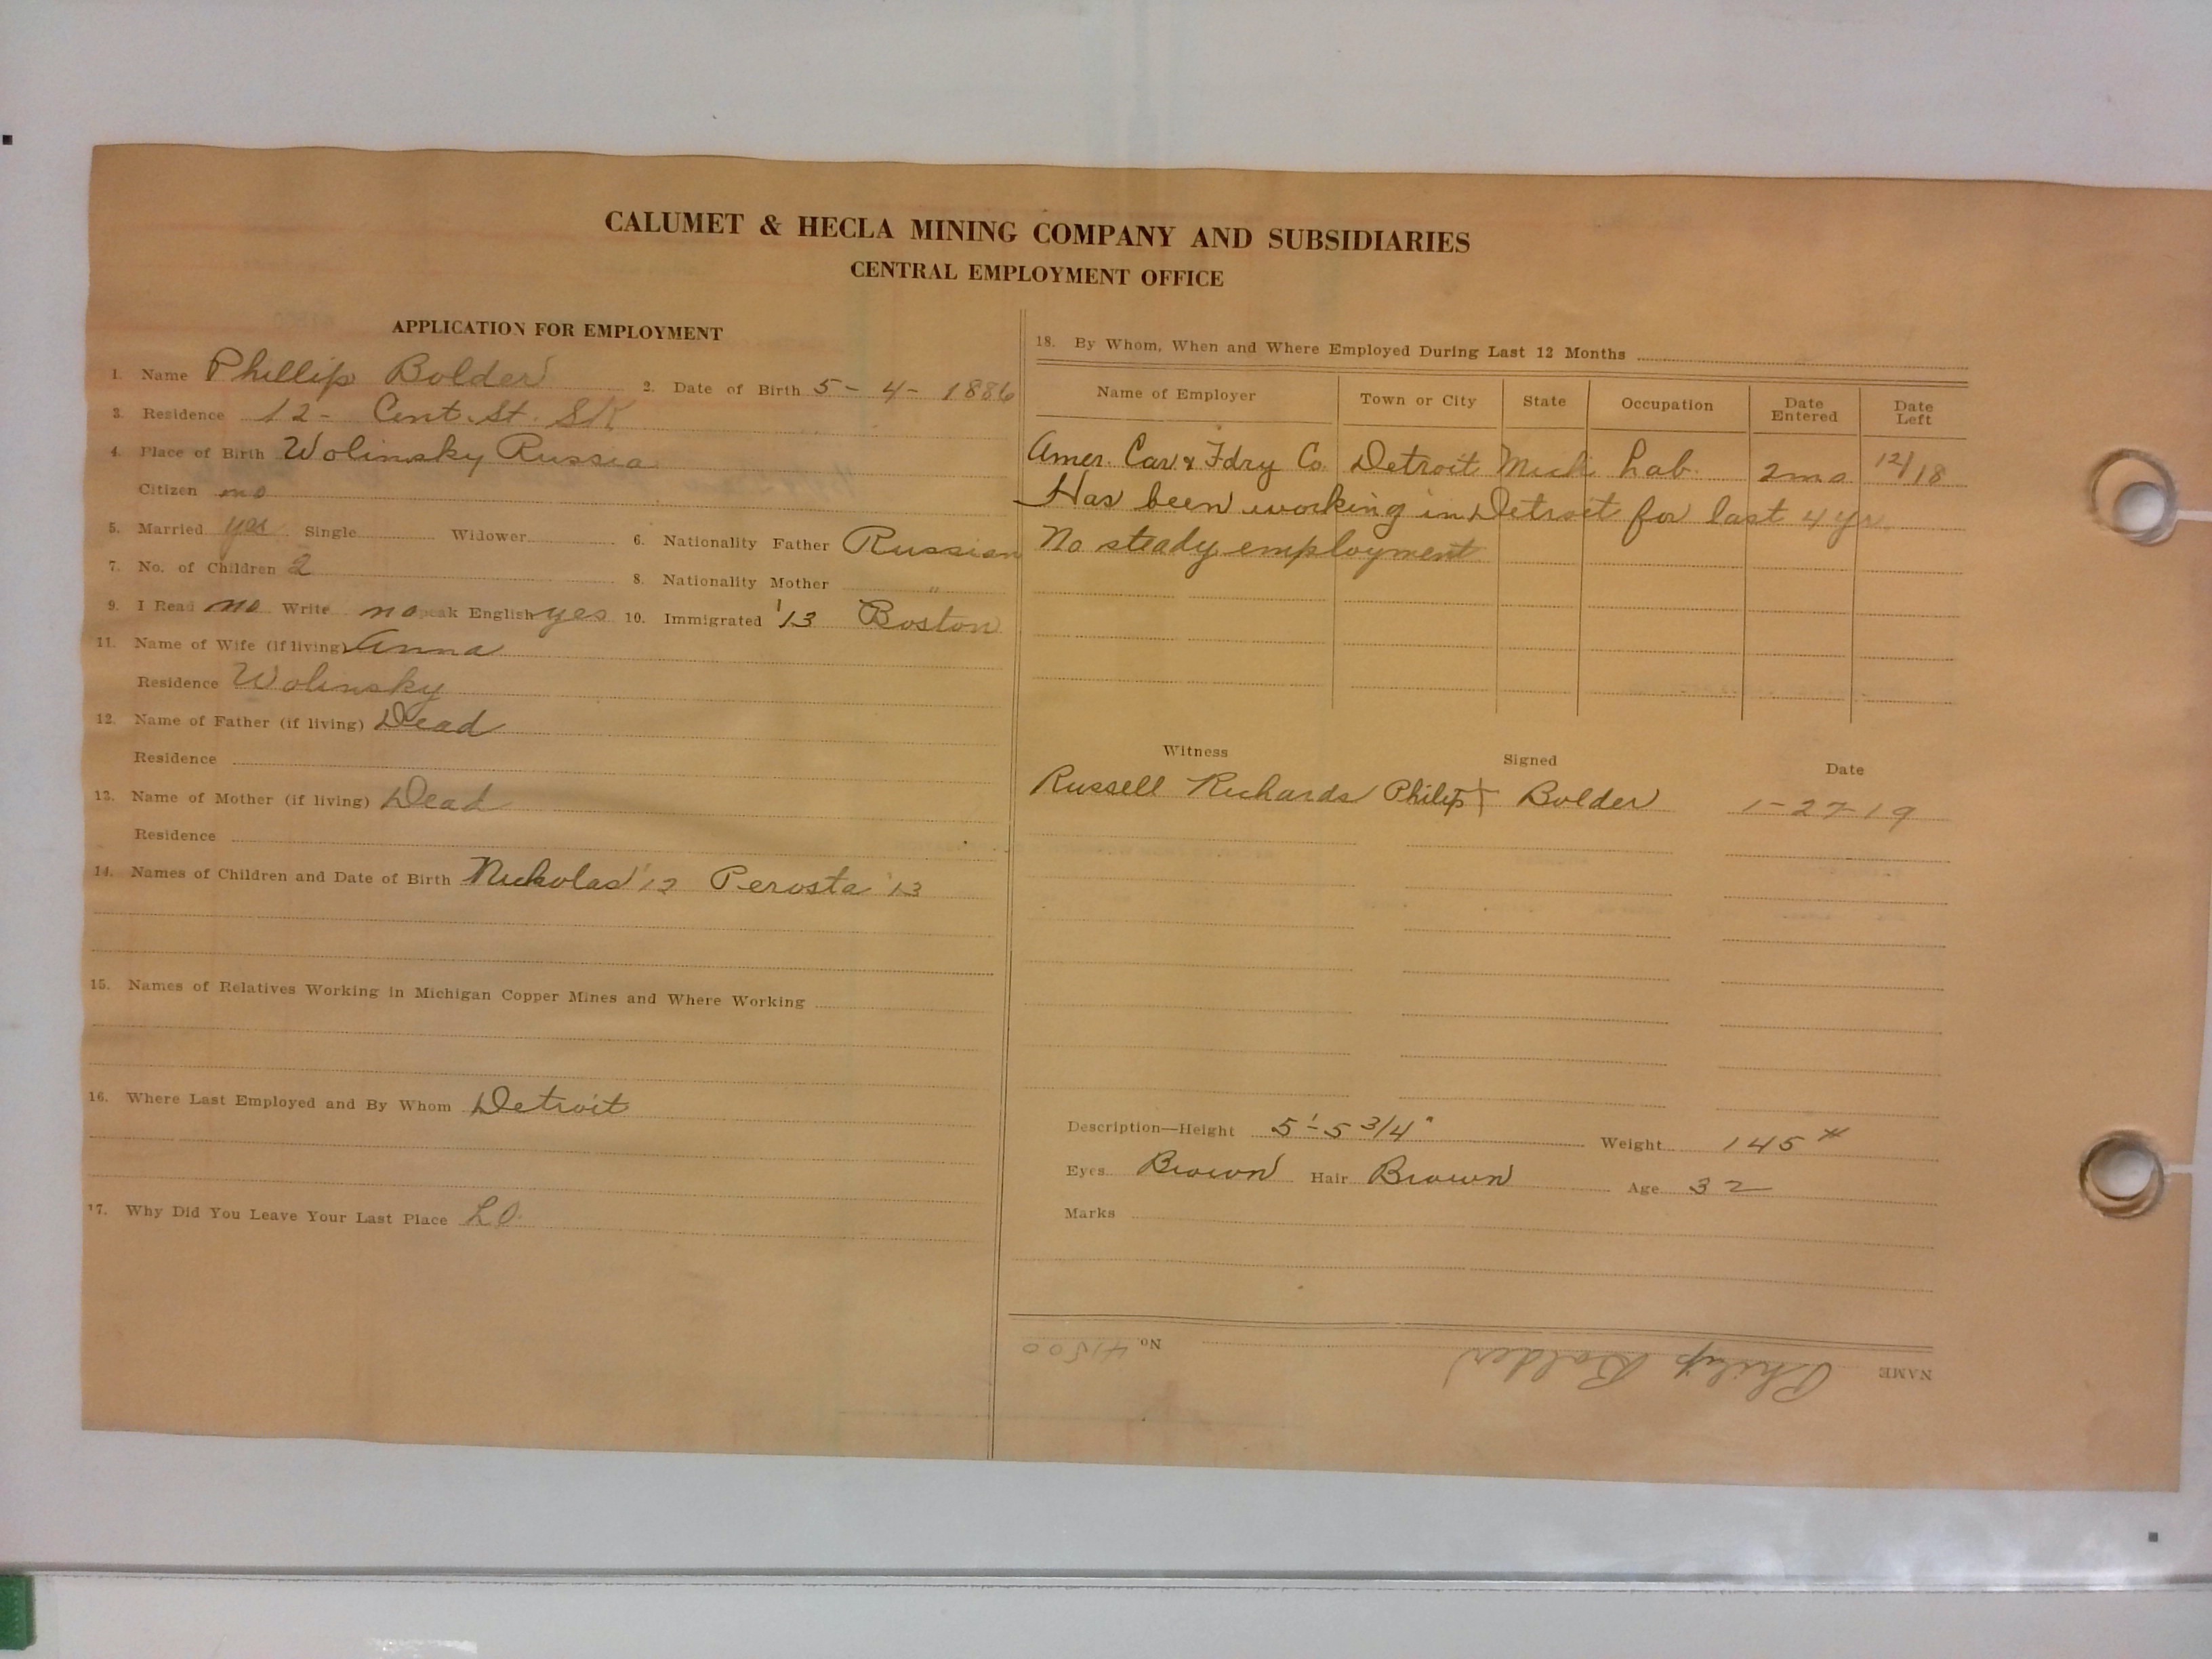 CALUMET & HECLA MINING COMPANY AND SUBSIDIARIES
CENTRAL EMPLOYMENT OFFICE
APPLICATION FOR EMPLOYMENT
1. Name Phillip Bolder 2. Date of Birth 5-4-1886
3. Residence 12- Cent. St. SK
4. Place of Birth Wolinsky Russia
Citizen no
5. Married yes Single Widower 6. Nationality Father Russian
7. No. of Children 2 8. Nationality Mother "
9. I Read no Write no Speak English yes 10. Immigrated '13 Boston
11. Name of Wife (if living) Anna
Residence Wolinsky
12. Name of Father (if living) Dead
Residence
13. Name of Mother (if living) Dead
Residence
14. Names of Children and Date of Birth Nickolas '12 Perosta '13
15. Names of Relatives Working in Michigan Copper Mines and Where Working
16. Where Last Employed and By Whom Detroit
17. Why Did You Leave Your Last Place L.O.
18. By Whom, When and Where Employed During Last 12 Months
Name of Employer Town or City State Occupation Date Entered Date Left
Amer. Car & Fdry Co. Detroit Mich Lab. 2mo 12/18
Has been working in Detroit for last 4 yr.
No steady employment
Witness Signed Date
Russell Richards Philip + Bolder 1-27-19
Description—Height 5'-5 3/4" Weight 145#
Eyes Brown Hair Brown Age 32
Marks
NAME Philip Bolder No. 41500